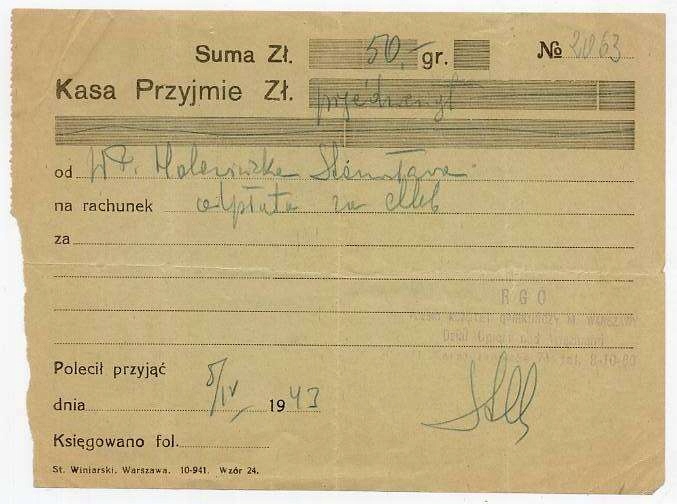 Suma Zł. 50,- gr. № 2063
Kasa Przyjmie Zł. pięćdziesiąt
od Wł. Malewiczka Stanisława
na rachunek odpłata za chleb
za
RGO
Polecił przyjąć
dnia 5/IV 1943
Księgowano fol.
St. Winiarski, Warszawa. 10-941. Wzór 24.